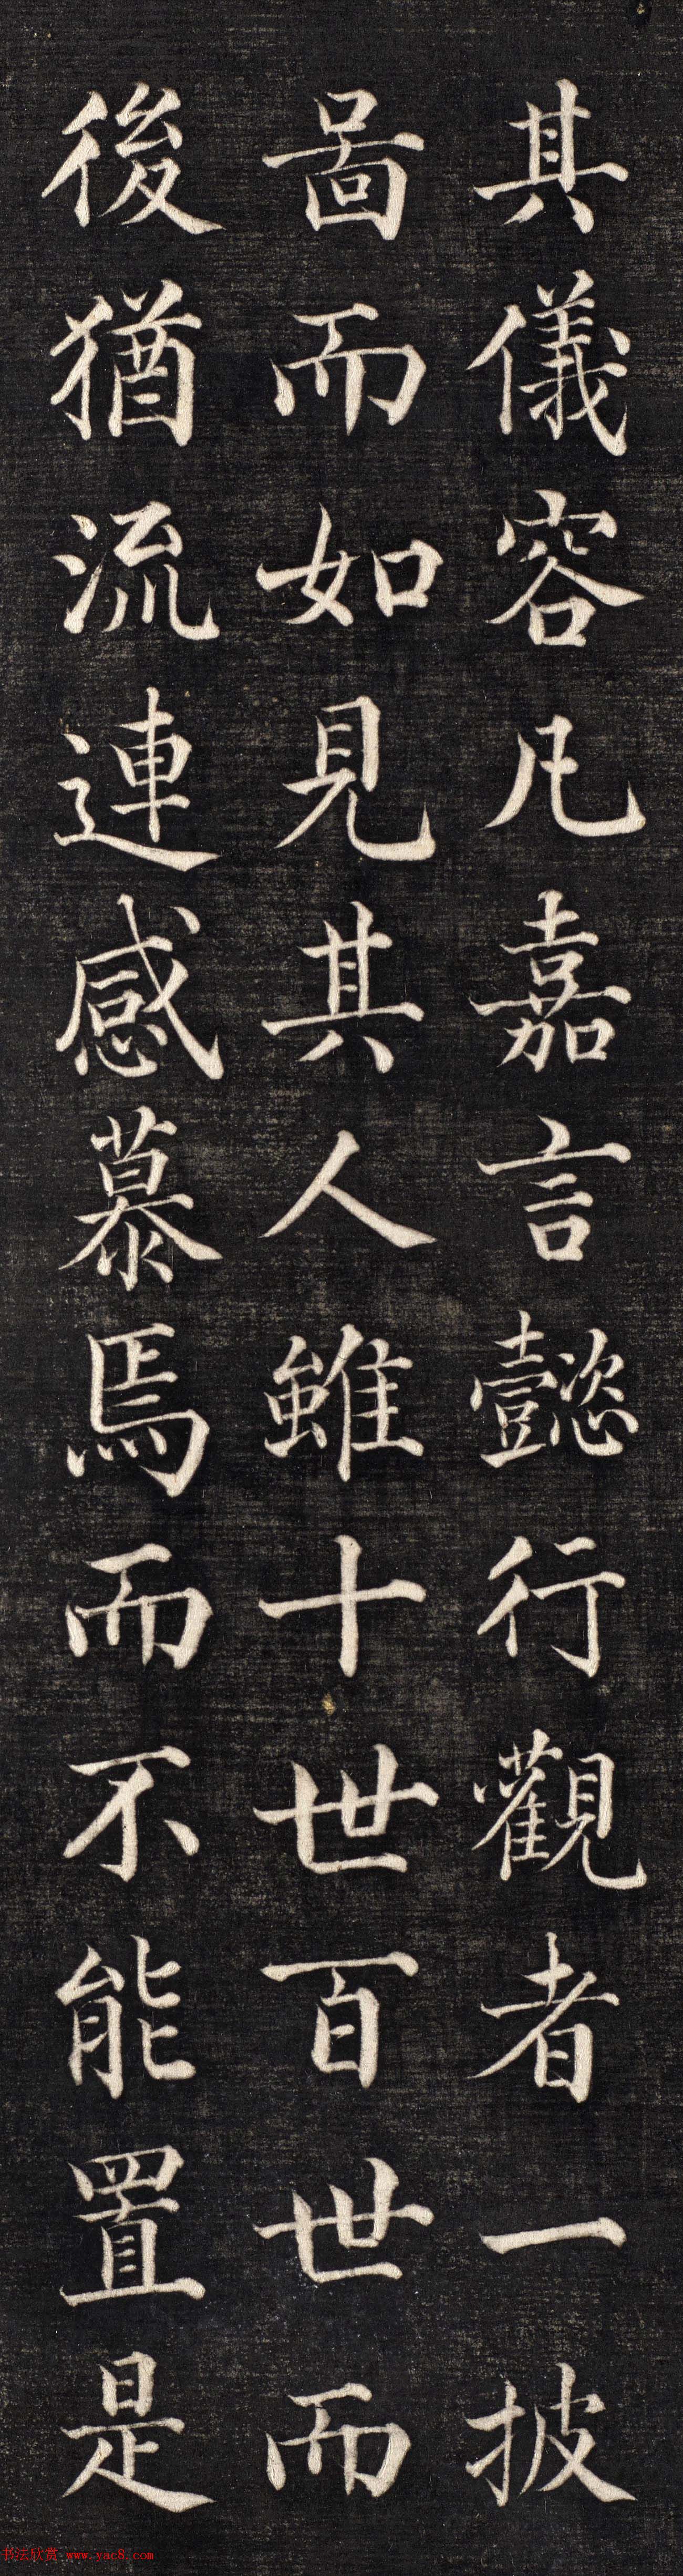 其儀容凡嘉言懿行觀者一披
啚而如見其人雖十世百世而
後猶流連感慕焉而不能置是
书法欣赏 www.yac8.com